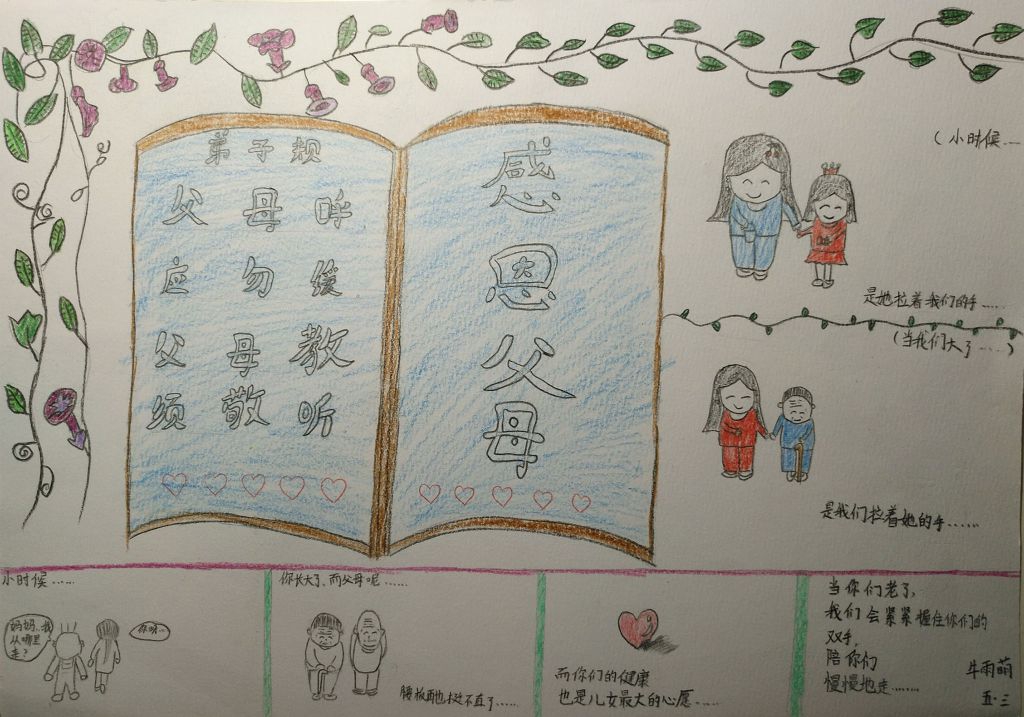 弟子规
父母呼
应勿缓
父母教
须敬听
感恩父母
（小时候...
是她拉着我们的手......
（当我们大了......）
是我们拉着她的手......
小时候......
妈妈..我
从哪里
走？
你长大了、而父母呢......
腰板再也挺不直了......
而你们的健康
也是儿女最大的心愿......
当你们老了，
我们会紧紧握住你们的
双手，
陪你们
慢慢地走......
牛雨萌
五·三